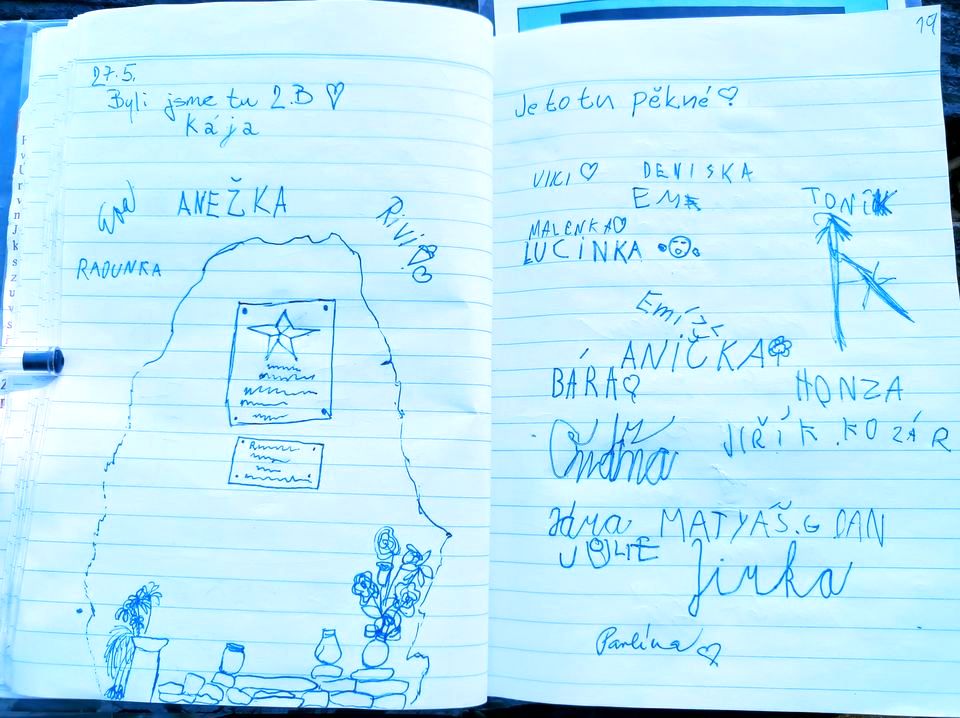 27.5.
Byli jsme tu 2.B
Kája
ANEŽKA
RADUNKA
19
Je to tu pěkné
VIKI DENISKA
EMA
TONÍK
MALENKA
LUCINKA
ANIČKA
BÁRA
HONZA
JIŘÍK.KOZÁR
MATYÁŠ.G DAN
JULIE
Jirka
Pavlína